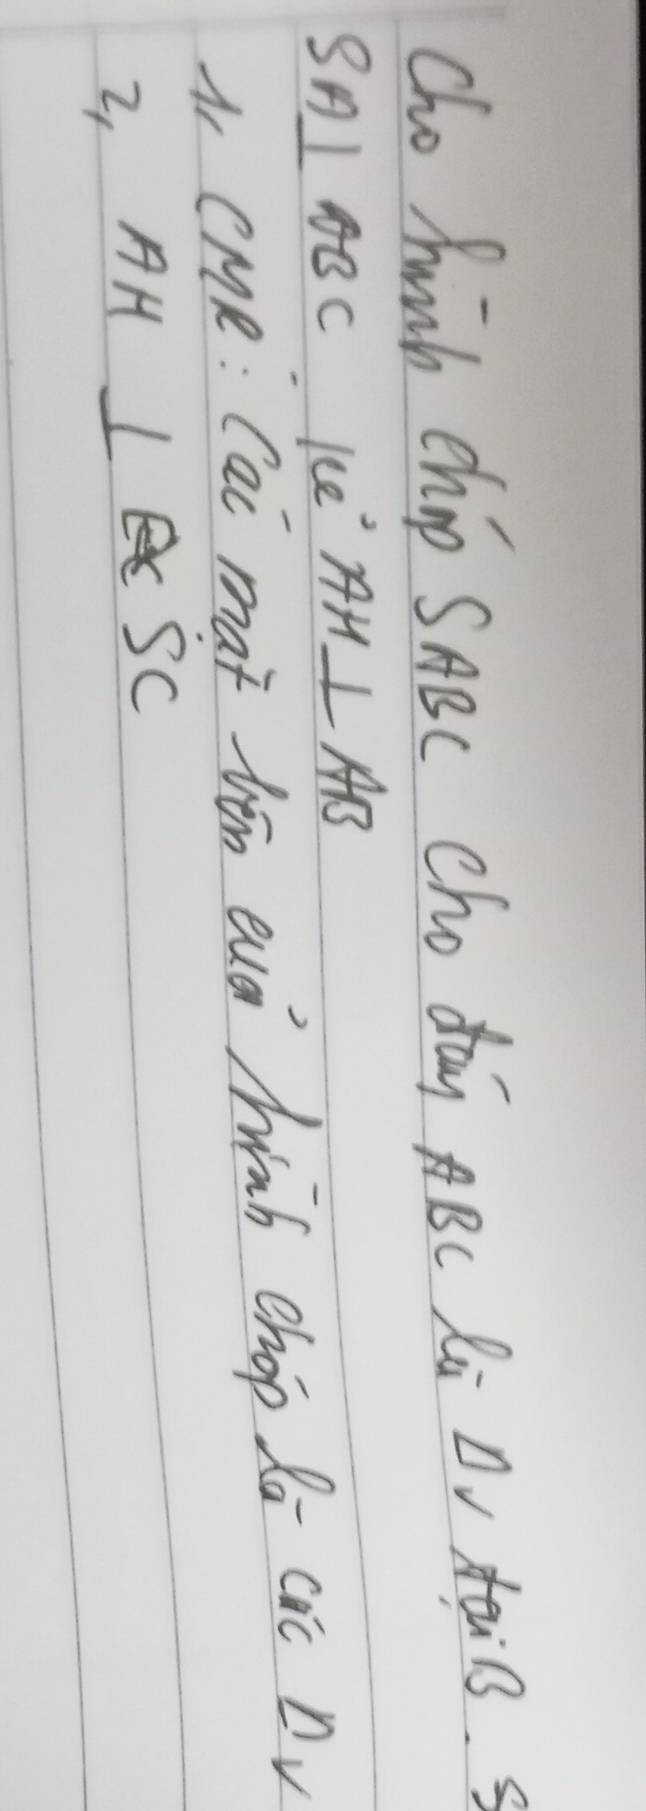 Cho hình chóp SABC Cho đáy ABC là Δv tại B. S
SA ⊥ ABC kẻ AH ⊥ AB
1, CMR: Các mặt bên của hình chóp là các Δv
2, AH ⊥ SC